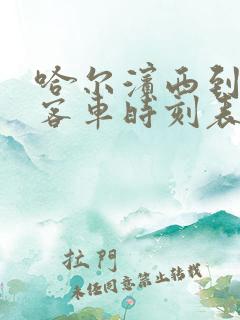 哈尔滨西到
客車時刻表
拉門
未经同意禁止转载